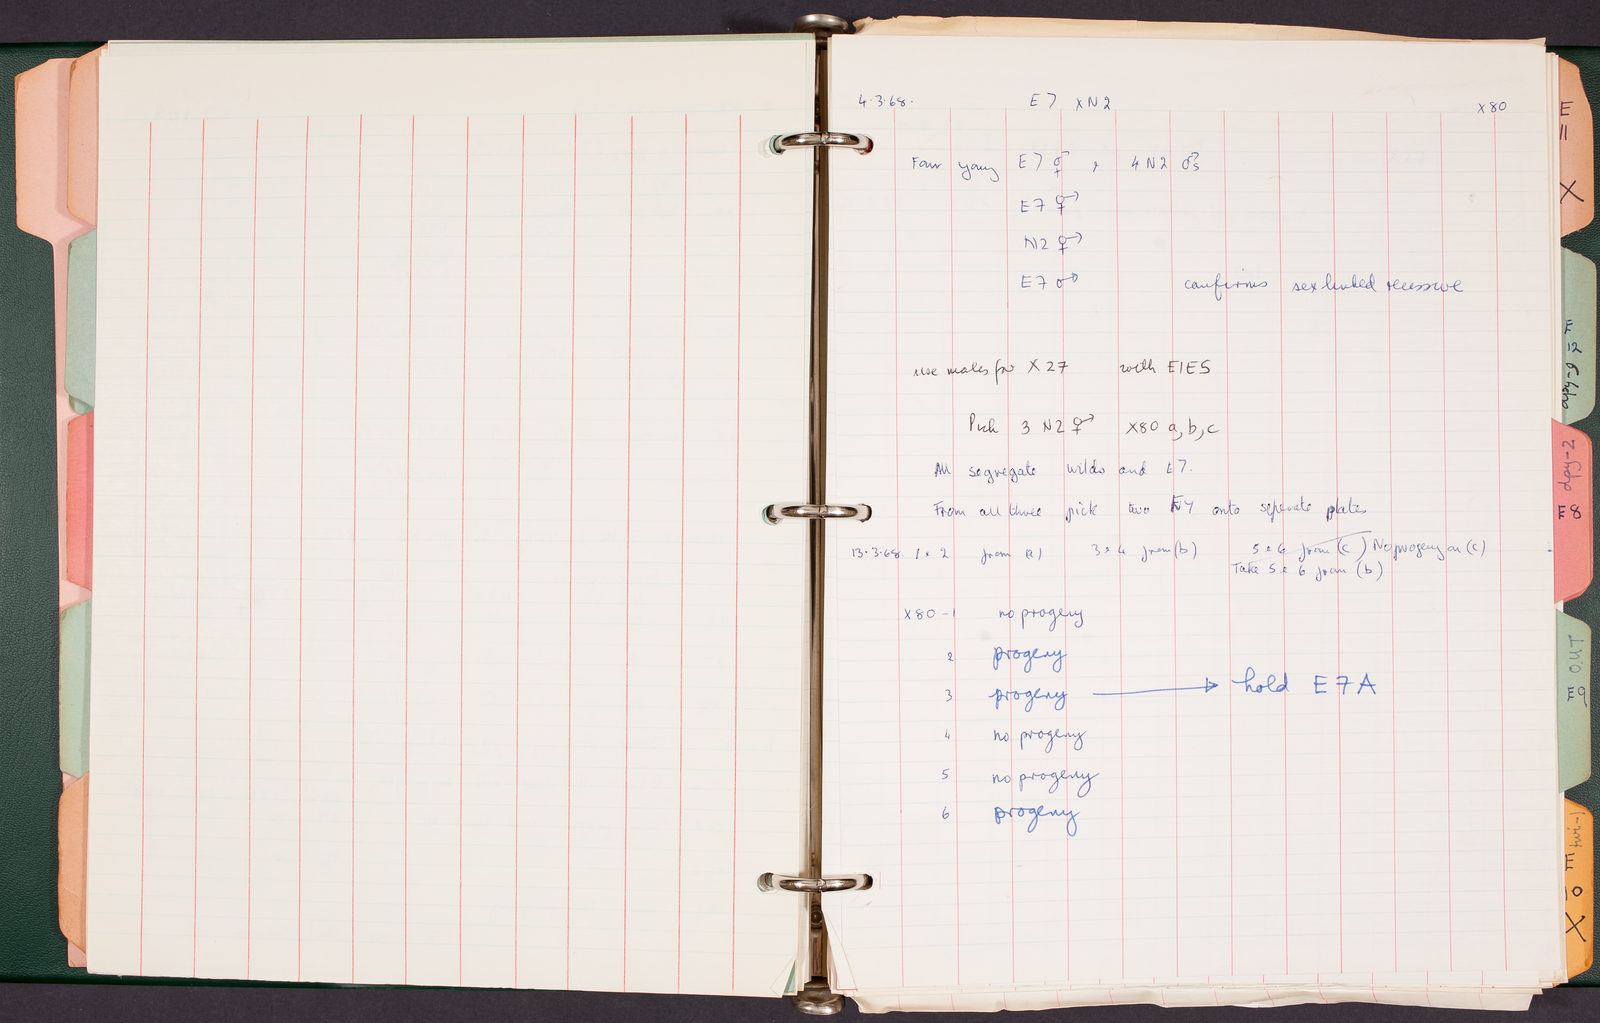 4.3.68.
E7 x N2
X80
Four young E7 ⚥, 4 N2 ♂s
E7 ⚥
N2 ⚥
E7 ♂ confirms sexlinked recessive
use males for X27 with E1E5
Pick 3 N2 ⚥ X80 a, b, c
All segregate wilds and E7.
From all three pick two E7 onto seperate plates
13.3.68. 1 & 2 from (a) 3 & 4 from (b) 5 & 6 from (c) No progeny on (c)
Take 5 & 6 from (b)
X80-1 no progeny
2 progeny
3 progeny → hold E7A
4 no progeny
5 no progeny
6 progeny
E
11
X
E
12
dpy-9
dpy-2
E8
OUT
E9
E
10
X